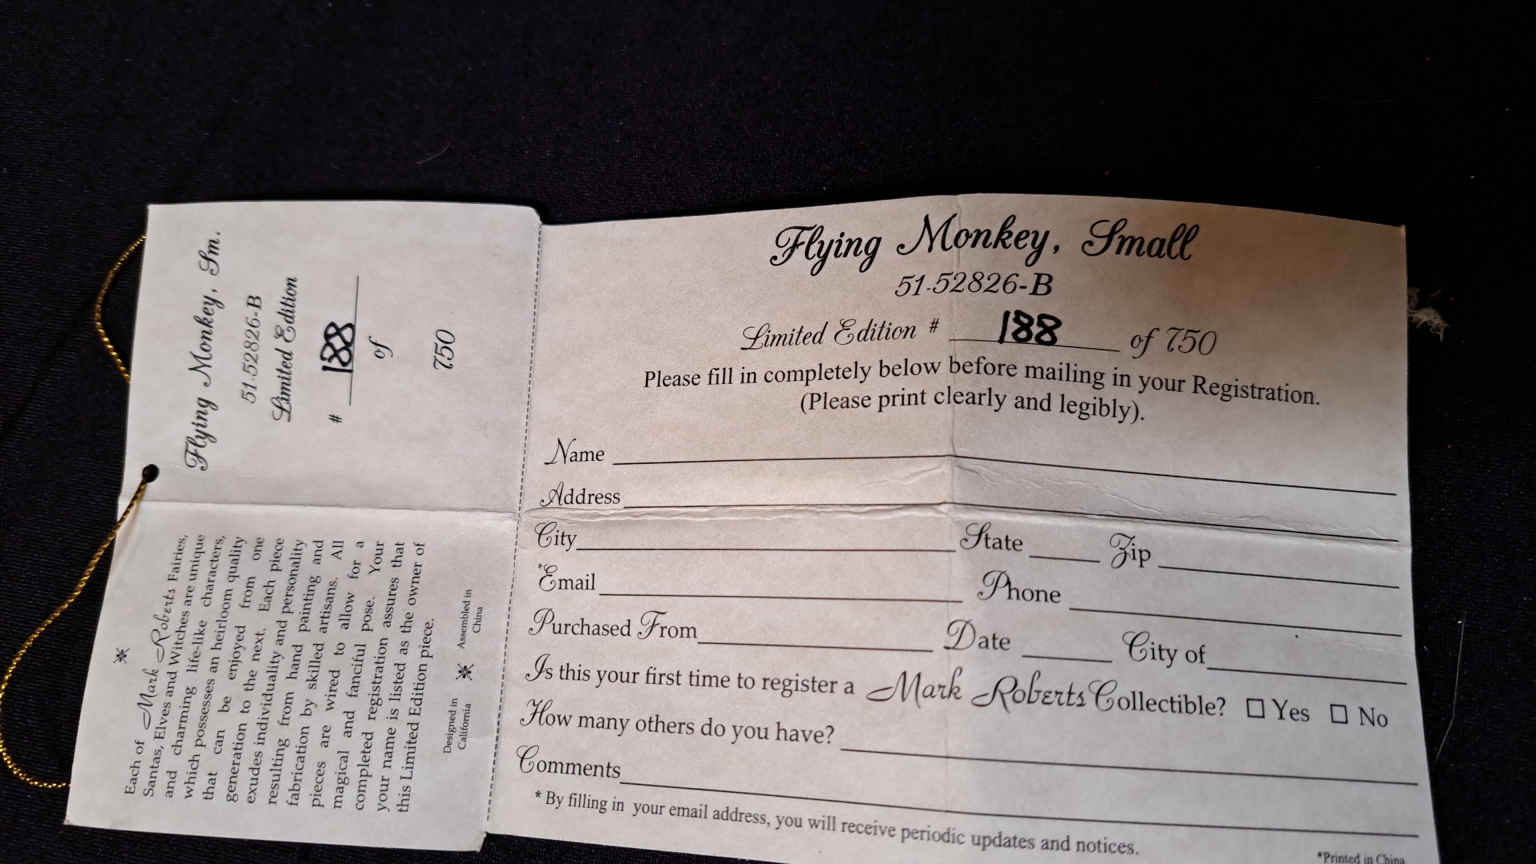 Flying Monkey, Sm.
51-52826-B
Limited Edition
# 188
of
750
Each of Mark Roberts Fairies,
Santas, Elves and Witches are unique
and charming life-like characters,
which possesses an heirloom quality
that can be enjoyed from one
generation to the next. Each piece
exudes individuality and personality
resulting from hand painting and
fabrication by skilled artisans. All
pieces are wired to allow for a
magical and fanciful pose. Your
completed registration assures that
your name is listed as the owner of
this Limited Edition piece.
Designed in
California
Assembled in
China
Flying Monkey, Small
51-52826-B
Limited Edition # 188 of 750
Please fill in completely below before mailing in your Registration.
(Please print clearly and legibly).
Name
Address
City State Zip
*Email Phone
Purchased From Date City of
Is this your first time to register a Mark Roberts Collectible? ☐ Yes ☐ No
How many others do you have?
Comments
* By filling in your email address, you will receive periodic updates and notices.
*Printed in China